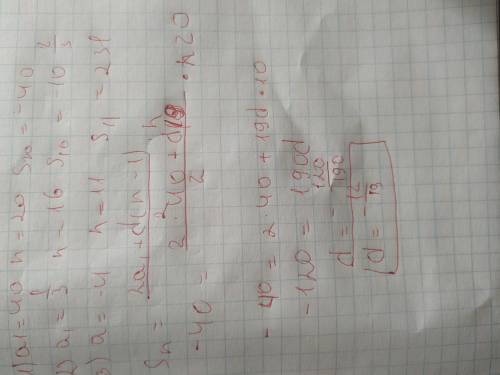 1) a1=40 n=20 S20=-40
2) a1=1/3 n=16 S16=10 2/3
3) a=-4 n=11 S11=231
Sn = 2a1+d(n-1)/2 · n
-40 = 2·40+d19/2 · 20
-40 = 2·40+19d·10
-120 = 190d
d = -120/190
d = -12/19